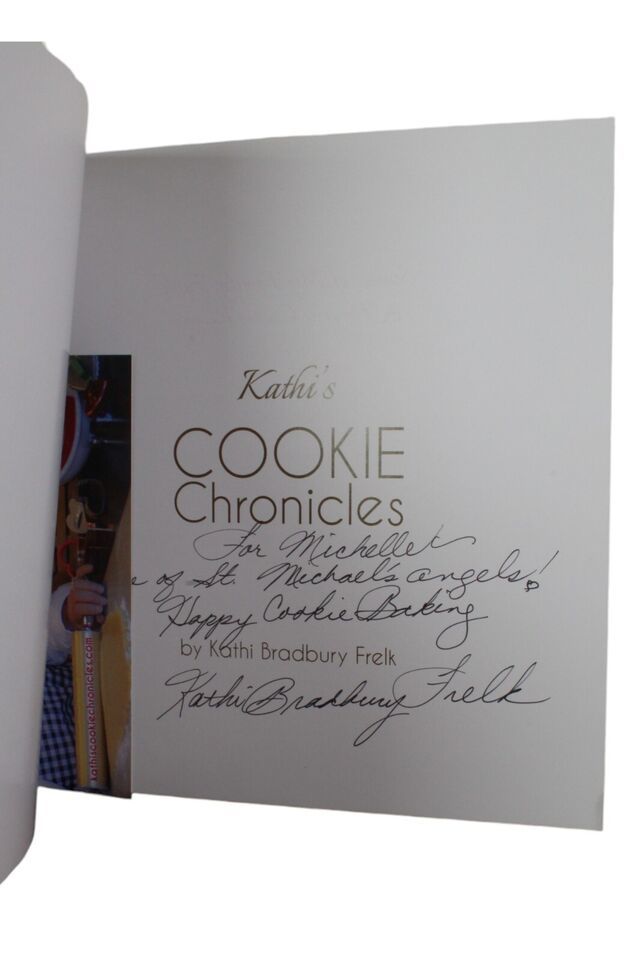 Kathi's
COOKIE
Chronicles
For Michelle
of St. Michael's angels!
Happy Cookie Baking
by Kathi Bradbury Frelk
Kathi Bradbury Frelk
kathiscookiechronicles.com